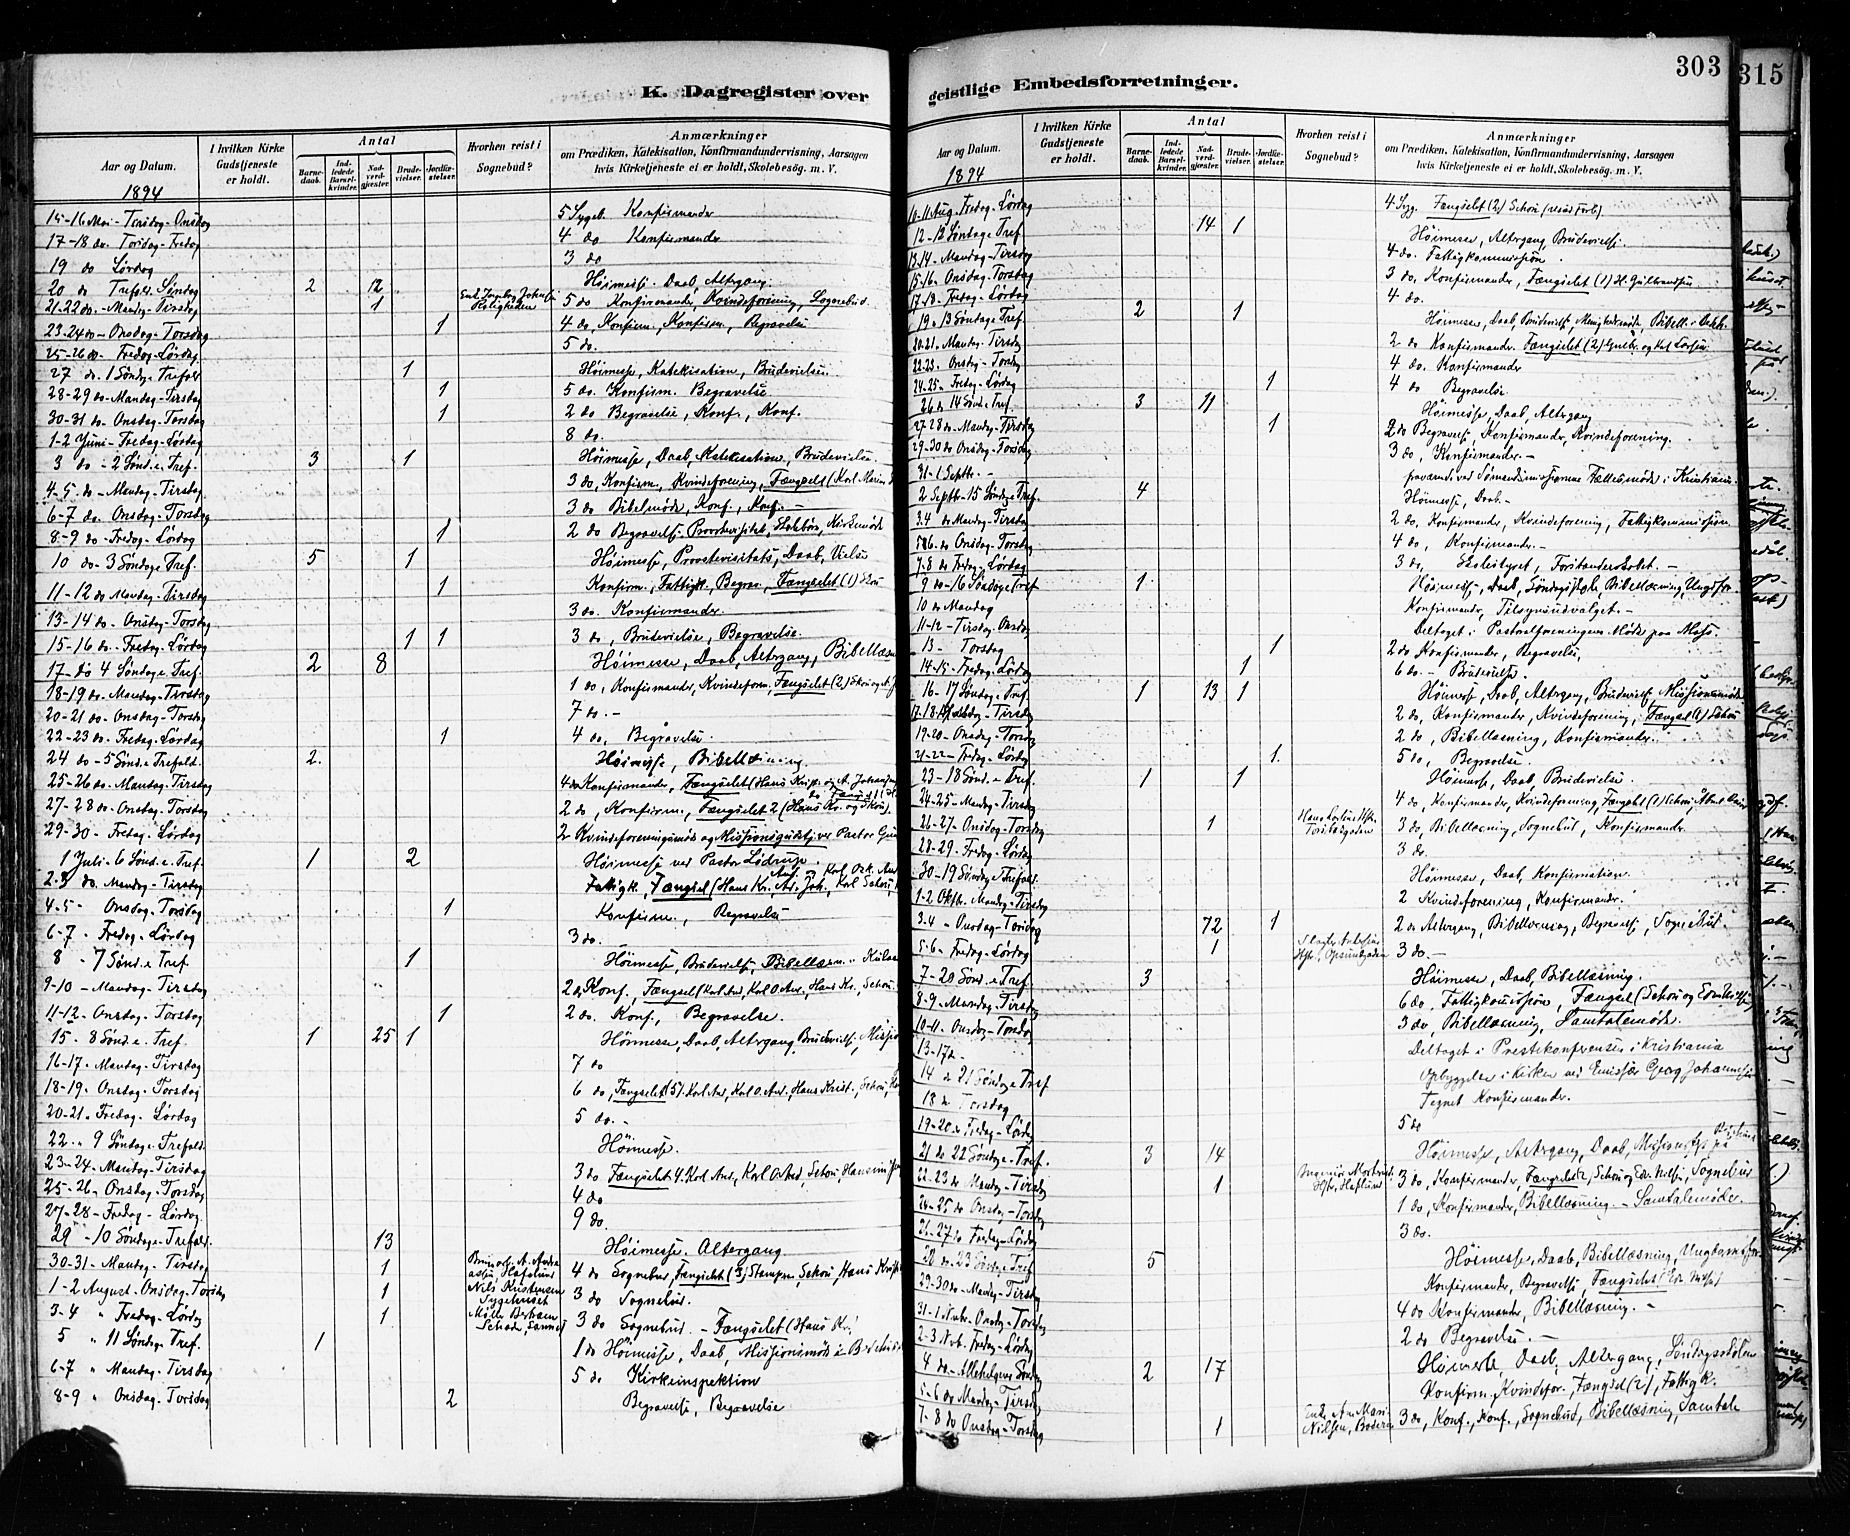 K. Dagregister over
Aar og Datum.
I hvilken Kirke Gudstjeneste er holdt.
Antal
Barnedaab.
Indledede Barselkvinder.
Nadverdgjester.
Brudevielser.
Jordfæstelser.
Hvorhen reist i Sognebud?
Anmærkninger
om Prædiken, Katekisation, Konfirmandundervisning, Aarsagen
hvis Kirketjeneste ei er holdt, Skolebesøg. m. V.
1894
15-16 Mai - Tirsdag-Onsdag 5 Sygeb. Konfirmander
17-18 do. Torsdag-Fredag 4 do Konfirmander
19 do Lørdag 3 do
20 do Trefold. Søndag 2 12 Høimesse. Daab, Altergang.
21-22 do. - Mandag-Tirsdag 1 5 do Konfirmander, Kvindeforening, Sognebud.
23-24 do - Onsdag-Torsdag 1 4 do, Konfirm., Konfirm., Begravelse
25-26 do. Fredag-Lørdag 5 do.
27 do. 1 Søndag e Trefold 1 Høimesse, Katekisation, Brudevielse.
28-29 do - Mandag-Tirsdag 1 5 do. Konfirm. Begravelse
30-31 do - Onsdag-Torsdag 1 2 do Begravelse, Konf., Konf.
1-2 Juni - Fredag-Lørdag 8 do.
3 do - 2 Sønd. e. Tref. 3 1 Høimesse, Daab, Katekisation, Brudevielse
4-5. do - Mandag-Tirsdag 3 do, Konfirm., Kvindeforening, Fængselt (Karl Marin
6-7 do. Onsdag-Torsdag 3 do Bibelmøde, Konf., Konf. -
8-9 do - Fredag-Lørdag 1 2 do Begravelse-Provstevisitet, Kirkemøde
10 do - 3 Søndag e Tref. 5 1 Høimesse, Provstevisitats, Daab, Vielse
11-12 do Mandag-Tirsdag 1 Konfirm., Fattigk, Begrav., Fængselet (1) Skou
13-14 do. Onsdag-Torsdag 3 do. Konfirmander.
15-16 do. Fredag-Lørdag 1 1 3 do, Brudevielse, Begravelse.
17- do 4 Søndag e. Tref. 2 8 Høimesse, Daab, Altergang, Bibellæsn
18-19 do. Mandag-Tirsdag 1 do, Konfirmander, Kvindeforen. Fængselet (2) Skou og A. J
20-21 do. Onsdag-Torsdag 7 do. -
22-23 do. Fredag-Lørdag 1 4 do, Begravelse.
24 do - 5 Sønd. e Trefold. 2. Høimesse, Bibellæsning
25-26 do. Mandag-Tirsdag 4 do Konfirmander, Fængselet (Hans Krist. og A. Johansen
27-28 do. Onsdag-Torsdag 2 do, Konfirm., Fængselet 2 (Hans Kr. og Skou).
29-30 - Fredag-Lørdag 2 Kvindeforeningsmøde og Missionsgudstj. ver Pastor
1 Juli - 6 Sønd. e. Tref. 1 2 Høimesse ved Pastor Lødrup.
2-3 do. Mandag-Tirsdag Fattigk., Fængsel (Hans Kr. And. Joh., Karl Schou,
4-5 " Onsdag-Torsdag 1 Konfirm., Begravelse
6-7 " Fredag-Lørdag 3 do.
8 " 7 Sønd. e Tref 1 Høimesse, Brudevielse, Bibellæsn.
9-10 - Mandag-Tirsdag 2 do Konf., Fængsel (Karl And, Karl O. And., Hans Kr., Schou,
11-12 Onsdag-Torsdag 1 2 do. Konf., Begravelse.
15. 8 Sønd. e. Tref. 1 25 1 Høimesse, Daab, Altergang, Brudevielse, Mission
16-17. Mandag-Tirsdag 7 do
18-19. Onsdag-Torsdag 6 do, Fængselet (5). Karl And, Karl O. And., Hans Krist., Schou,
20-21. Fredag-Lørdag 5 do. -
22. " 9 Søndag e. Trefold. Høimesse.
23-24. Mandag-Tirsdag 3 do Fængselet 4. Karl And, Karl O. And Schou, Hans
25-26 Onsdag-Torsdag 4 do
27-28 - Fredag-Lørdag 9 do.
29 " - 10 Søndag e. Trefold. 13 Høimesse. Altergang
30-31. Mandag-Tirsdag 1 4 do Sognebud, Fængselet (3) Schou, Hans Krist
1-2 August. Onsdag-Torsdag 1 Nils Kristensen Sygehuset 3 do Sognebud.
3-4 " Fredag-Lørdag 1 3 do Sognebud. - Fængselet (Hans Kr.)
5 " 11 Søndag e. Tref. 1 1 do Høimesse, Daab, Missionsmøde i
6-7 " Mandag-Tirsdag 5 do Kirkeinspektion
8-9 " Onsdag-Torsdag 2 Begravelse, Begravelse
geistlige Embedsforretninger.
303
315
Aar og Datum.
I hvilken Kirke Gudstjeneste er holdt.
Antal
Barnedaab.
Indledede Barselkvinder.
Nadverdgjester.
Brudevielser.
Jordfæstelser.
Hvorhen reist i Sognebud?
Anmærkninger
om Prædiken, Katekisation, Konfirmandundervisning, Aarsagen
hvis Kirketjeneste ei er holdt, Skolebesøg. m. V.
1894
10-11 Aug. Fredag-Lørdag 4 Syg. Fængselet (2) Schou
12 - 12 Søndag e Tref. 14 1 Høimesse, Altergang, Brudevielse.
13.14. Mandag-Tirsdag 4 do. Fattigkommission.
15-16. Onsdag-Torsdag 3 do, Konfirmander, Fængselet (1) H. Gulbrandsen
17-18. Fredag-Lørdag 4 do.
19. 13 Søndag e Tref. 2 1 Høimesse, Daab, Brudevielse, Menighedsmøde, Bibell.
20-21. Mandag-Tirsdag 2 do Konfirmander. Fængselet (2)
22-23. Onsdag-Torsdag 4 do. Konfirmander
24-25 - Fredag-Lørdag 1 4 do Begravelse
26 do 14 Sønd. e Tref. 3 11 Høimesse, Daab, Altergang
27-28 do - Mandag-Tirsdag 1 2 do Begravelse, Konfirmander, Kvindeforening.
29-30 do Onsdag-Torsdag 3 do, Konfirmander. -
31 - 1 Septb. - fraværende ved Sømandsmissionens Fællesmøde i Kristiania.
2 Septb - 15 Søndag e Tref. 4 Høimesse, Daab. -
3.4 do Mandag-Tirsdag 2 do, Konfirmander, Kvindeforening, Fattigkommission
5-6. do Onsdag-Torsdag 4 do, Konfirmander. -
7-8 do Fredag-Lørdag 3 do, Skolestyret, Forstanderskabet. -
9 do - 16 Søndag e Tref 1 Høimesse, Daab, Søndagsskole, Bibellæsning, Ungdfor.
10 do Mandag Konfirmander, Tilsynsudvalget. -
11-12 - Tirsdag-Onsdag Deltaget i Pastoralforeningens Møde paa Moss.
13 - Torsdag 1 2 do Konfirmander, Begravelse,
14-15 - Fredag-Lørdag 1 6 do. - Brudevielse.
16 - 17 Søndag e Tref 1 13 1 Høimesse, Daab, Altergang, Brudevielse, Missionsmøde
17-18. Mandag-Tirsdag 2 do, Konfirmander, Kvindeforening, Fængsel (1) Schou
19-20 - Onsdag-Torsdag 2 do, Bibellæsning, Konfirmander.
21-22 - Fredag-Lørdag 1. 5 do, Begravelse.
23 - 18 Sønd. e Tref. 1 1 Høimesse, Daab, Brudevielse.
24-25 - Mandag-Tirsdag 4 do, Konfirmander, Kvindeforening, Fængslet (2) Schou,
26-27. Onsdag-Torsdag 1 3 do, Bibellæsning, Sognebud, Konfirmander.
28-29. Fredag-Lørdag 3 do.
30 - 19 Søndag e Trefold. Høimesse, Daab, Konfirmation.
1-2 Oktbr. Mandag-Tirsdag 2 Kvindeforening, Konfirmander.
3-4 " Onsdag-Torsdag 72 1 2 do Altergang, Bibellæsning, Begravelse, Sognebud.
5-6 - Fredag-Lørdag 1 3 do. -
7 - 20 Sønd. e Tref 3 Høimesse, Daab, Bibellæsning.
8-9. Mandag-Tirsdag 6 do, Fattigkommission, Fængsel (Schou og
10-11. Onsdag-Torsdag 3 do, Bibellæsning, Samtalemøde
13-17 do - Deltaget i Prestekonferensen i Kristiania
14 do 21 Søndag e Tref Opbyggelse i Kirken ved Emissær Georg Johannesen
18 do Torsdag Tegnet Konfirmander.
19-20 do Fredag-Lørdag 5 do
21 do 22 Søndag e. Tref. 3 14 Høimesse, Altergang, Daab,
22-23 do Mandag-Tirsdag 1 3 do, Konfirmander, Fængselet, Schou og Nils., Sognebud
24-25 do Onsdag-Torsdag 1 do, Konfirmander, Bibellæsning. - Samtalemøde
26-27 do Fredag-Lørdag 3 do.
28 do. 23 Søndag e Tref 5 Høimesse, Daab, Bibellæsning, Ungdomsfor
29-30 do - Mandag-Tirsdag Konfirmander, Begravelse, Fængselet
31 - 1 Nvbr. Onsdag-Torsdag 4 do Konfirmander, Bibellæsning. -
2-3. Nvb. Fredag-Lørdag 2 do Begravelse. -
4 do - Allehelgens Søndag 2 17 Høimesse, Daab, Altergang, Søndagsskolen
5-6 do Mandag-Tirsdag Konfirm., Kvindefor., Fængsel (2), Fattigk.
7-8 do Onsdag-Torsdag 1 3 do, Konf., Konf., Sognebud, Bibellæsning, Samtale